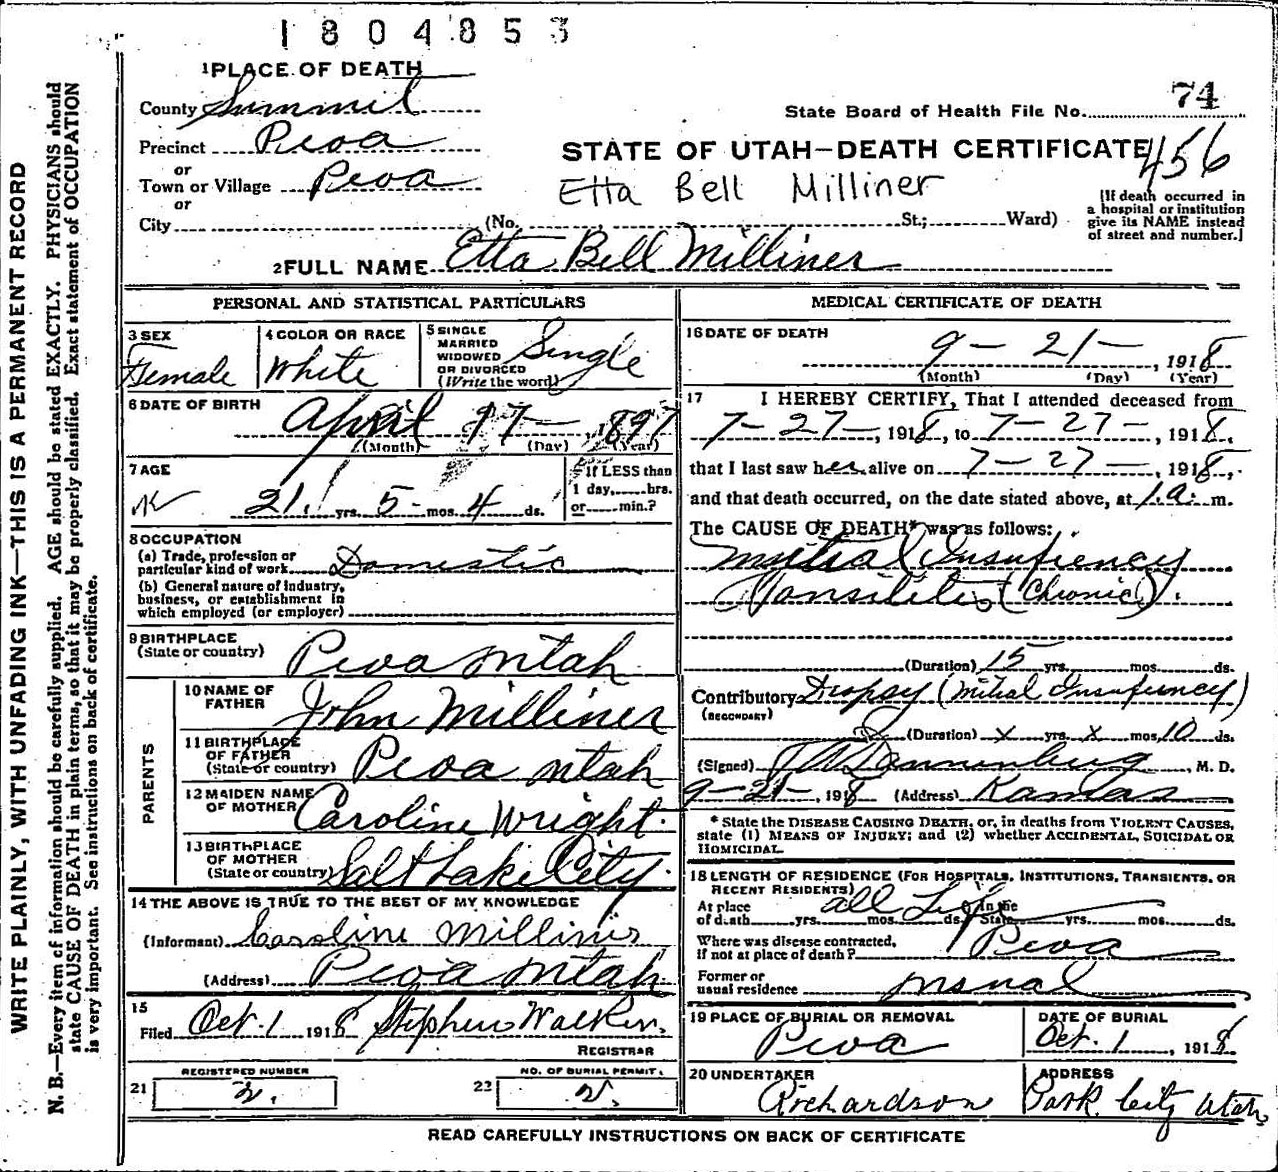 1804853
1 PLACE OF DEATH
County Summit
Precinct Peoa
or
Town or Village Peoa
or
City (No. St.; Ward)
State Board of Health File No. 74
STATE OF UTAH—DEATH CERTIFICATE 456
Etta Bell Milliner
[If death occurred in
a hospital or institution
give its NAME instead
of street and number.]
2 FULL NAME Etta Bell Milliner
PERSONAL AND STATISTICAL PARTICULARS
3 SEX
Female
4 COLOR OR RACE
White
5 SINGLE
MARRIED
WIDOWED
OR DIVORCED
(Write the word)
Single
6 DATE OF BIRTH
April 17— 1897
(Month) (Day) (Year)
7 AGE
21 yrs. 5 mos. 4 ds.
If LESS than
1 day, hrs.
or min.?
8 OCCUPATION
(a) Trade, profession or
particular kind of work Domestic
(b) General nature of industry,
business, or establishment in
which employed (or employer)
9 BIRTHPLACE
(State or country)
Peoa Utah
PARENTS
10 NAME OF
FATHER
John Milliner
11 BIRTHPLACE
OF FATHER
(State or country)
Peoa Utah
12 MAIDEN NAME
OF MOTHER
Caroline Wright.
13 BIRTHPLACE
OF MOTHER
(State or country)
Salt Lake City.
14 THE ABOVE IS TRUE TO THE BEST OF MY KNOWLEDGE
(Informant) Caroline Millinir
(Address) Peoa Utah
15
Filed Oct. 1 1918 Stephen Walker.
REGISTRAR
REGISTERED NUMBER
21 2.
NO. OF BURIAL PERMIT.
22 2.
MEDICAL CERTIFICATE OF DEATH
16 DATE OF DEATH
9— 21—, 1918
(Month) (Day) (Year)
17 I HEREBY CERTIFY, That I attended deceased from
7— 27—, 1918, to 7— 27—, 1918.
that I last saw her alive on 7— 27—, 1918,
and that death occurred, on the date stated above, at 1.a. m.
The CAUSE OF DEATH* was as follows:
Mitral Insufiency
Tonsilitis (Chronic).
(Duration) 15 yrs. mos. ds.
Contributory Dropsy (Mitral Insufiency)
(SECONDARY)
(Duration) x yrs. x mos. 10 ds.
(Signed) Dannenberg, M. D.
9—21—, 1918 (Address) Kamas
* State the DISEASE CAUSING DEATH, or, in deaths from VIOLENT CAUSES,
state (1) MEANS OF INJURY; and (2) whether ACCIDENTAL, SUICIDAL OR
HOMICIDAL.
18 LENGTH OF RESIDENCE (FOR HOSPITALS, INSTITUTIONS, TRANSIENTS, OR
RECENT RESIDENTS)
At place
of death yrs. mos. ds. all Life In the State yrs. mos. ds.
Where was disease contracted,
if not at place of death? Peoa
Former or
usual residence usual
19 PLACE OF BURIAL OR REMOVAL
Peoa
DATE OF BURIAL
Oct. 1, 1918
20 UNDERTAKER
Richardson
ADDRESS
Park City Utah
READ CAREFULLY INSTRUCTIONS ON BACK OF CERTIFICATE
WRITE PLAINLY, WITH UNFADING INK—THIS IS A PERMANENT RECORD
N. B.—Every item of information should be carefully supplied. AGE should be stated EXACTLY. PHYSICIANS should
state CAUSE OF DEATH in plain terms, so that it may be properly classified. Exact statement of OCCUPATION
is very important. See instructions on back of certificate.